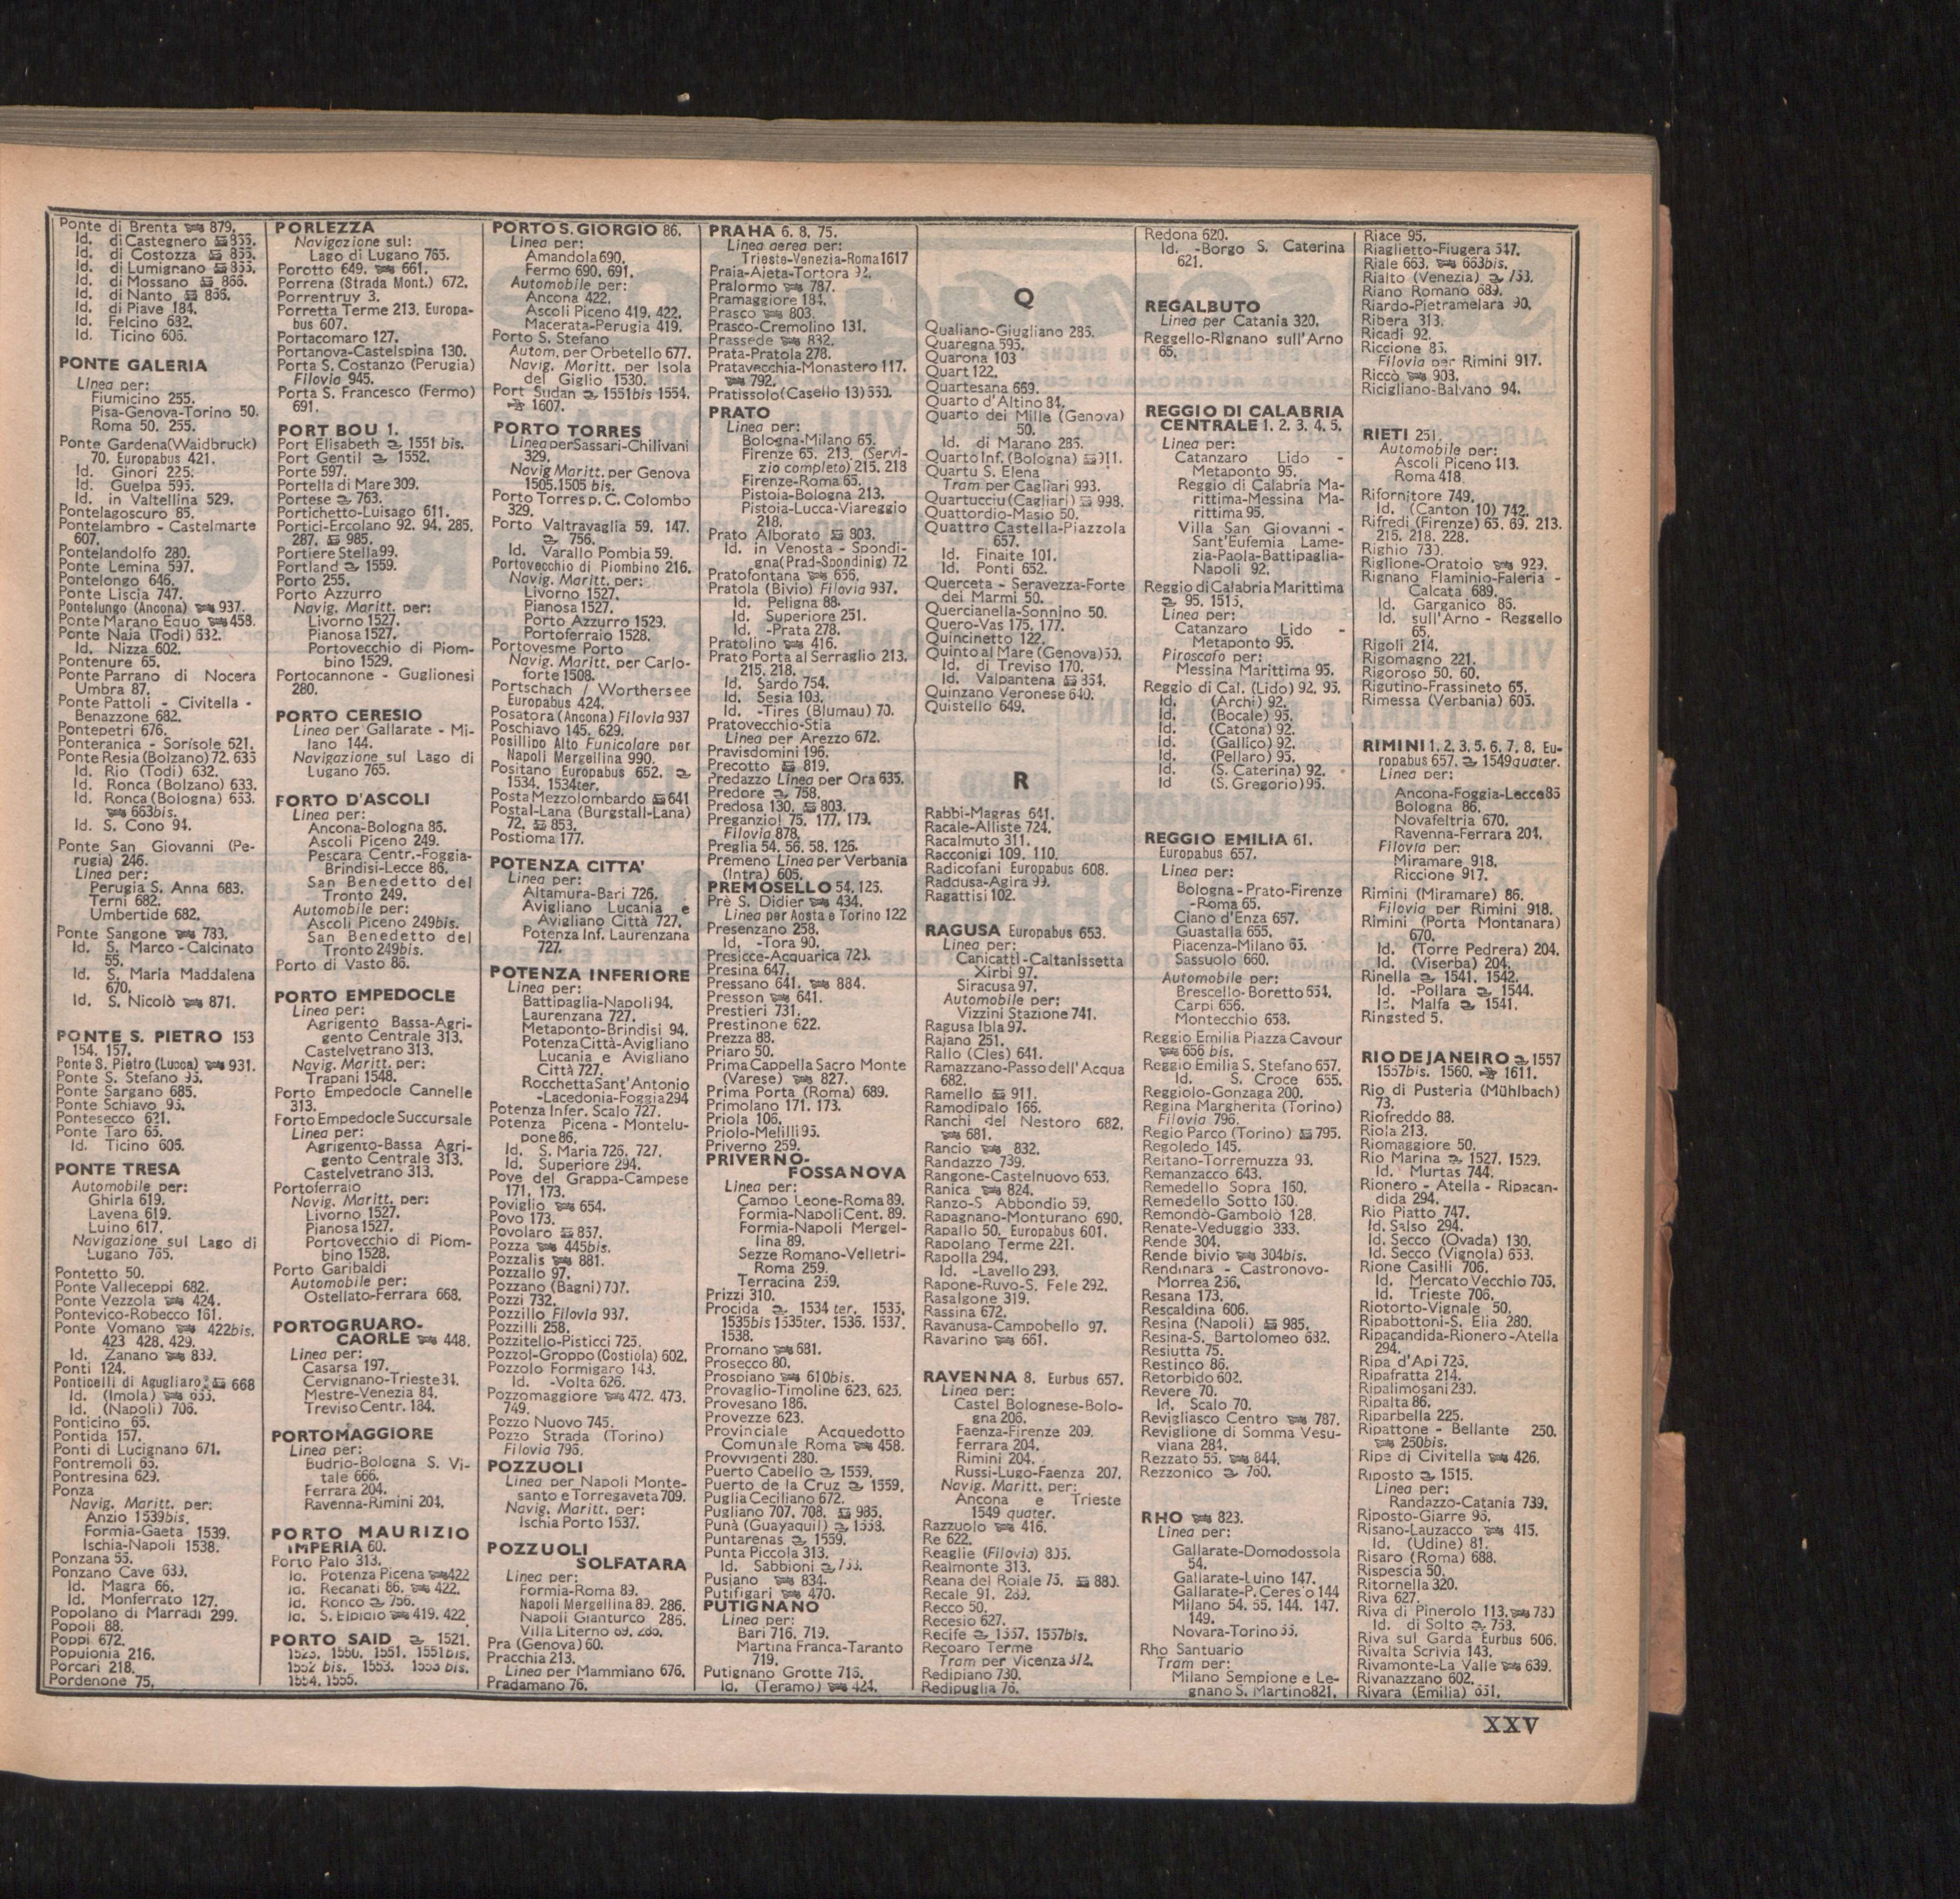 Ponte di Brenta 879.
Id. di Castegnero
Id. di Costozza
Id. di Lumignano
Id. di Mossano 866.
Id. di Nanto 866.
Id. di Piave 184.
Id. Felcino 682.
Id. Ticino 606.
PONTE GALERIA
Linea per:
Fiumicino 255.
Pisa-Genova-Torino 50.
Roma 50. 255.
Ponte Gardena (Waidbruck)
70. Europabus 421.
Id. Ginori 225.
Id. Guelpa 595.
Id. in Valtellina 529.
Pontelagoscuro 85.
Pontelambro - Castelmarte
607.
Pontelandolfo 280.
Ponte Lemina 597.
Pontelongo 646.
Ponte Liscia 747.
Pontelungo (Ancona) 937.
Ponte Marano Equo 458.
Ponte Naia (Todi) 632.
Id. Nizza 602.
Pontenure 65.
Ponte Parrano di Nocera
Umbra 87.
Ponte Pattoli - Civitella -
Benazzone 682.
Pontepetri 676.
Ponteranica - Sorisole 621.
Ponte Resia (Bolzano) 72. 633
Id. Rio (Todi) 632.
Id. Ronca (Bolzano) 633.
Id. Ronca (Bologna) 653.
663bis.
Id. S. Cono 94.
Ponte San Giovanni (Pe-
rugia) 246.
Linea per:
Perugia S. Anna 683.
Terni 682.
Umbertide 682.
Ponte Sangone 783.
Id. S. Marco - Calcinato
55.
Id. S. Maria Maddalena
670.
Id. S. Nicolò 871.
PONTE S. PIETRO 153
154. 157.
Ponte S. Pietro (Lucca) 931.
Ponte S. Stefano 95.
Ponte Sargano 685.
Ponte Schiavo 95.
Pontesecco 621.
Ponte Taro 65.
Id. Ticino 606.
PONTE TRESA
Automobile per:
Ghirla 619.
Lavena 619.
Luino 617.
Navigazione sul Lago di
Lugano 765.
Pontetto 50.
Ponte Valleceppi 682.
Ponte Vezzola 424.
Pontevico-Robecco 161.
Ponte Vomano 422bis.
423 428. 429.
Id. Zanano 839.
Ponti 124.
Ponticelli di Agugliaro 668
Id. (Imola)
Id. (Napoli) 706.
Ponticino 65.
Pontida 157.
Ponti di Lucignano 671.
Pontremoli 65.
Pontresina 629.
Ponza
Navig. Maritt. per:
Anzio 1539bis.
Formia-Gaeta 1539.
Ischia-Napoli 1538.
Ponzana 55.
Ponzano Cave 639.
Id. Magra 66.
Id. Monferrato 127.
Popolano di Marradi 299.
Popoli 88.
Poppi 672.
Populonia 216.
Porcari 218.
Pordenone 75.
PORLEZZA
Navigazione sul:
Lago di Lugano 765.
Porotto 649. 661.
Porrena (Strada Mont.) 672.
Porrentruy 3.
Porretta Terme 213. Europa-
bus 607.
Portacomaro 127.
Portanova-Castelspina 130.
Porta S. Costanzo (Perugia)
Filovia 945.
Porta S. Francesco (Fermo)
691.
PORT BOU 1.
Port Elisabeth 1551 bis.
Port Gentil 1552.
Porte 597.
Portella di Mare 309.
Portese 763.
Portichetto-Luisago 611.
Portici-Ercolano 92. 94. 285.
287. 985.
Portiere Stella 99.
Portland 1559.
Porto 255.
Porto Azzurro
Navig. Maritt. per:
Livorno 1527.
Pianosa 1527.
Portovecchio di Piom-
bino 1529.
Portocannone - Guglionesi
280.
PORTO CERESIO
Linea per Gallarate - Mi-
lano 144.
Navigazione sul Lago di
Lugano 765.
PORTO D'ASCOLI
Linea per:
Ancona-Bologna 86.
Ascoli Piceno 249.
Pescara Centr.-Foggia-
Brindisi-Lecce 86.
San Benedetto del
Tronto 249.
Automobile per:
Ascoli Piceno 249bis.
San Benedetto del
Tronto 249bis.
Porto di Vasto 86.
PORTO EMPEDOCLE
Linea per:
Agrigento Bassa-Agri-
gento Centrale 313.
Castelvetrano 313.
Navig. Maritt. per:
Trapani 1548.
Porto Empedocle Cannelle
313.
Porto Empedocle Succursale
Linea per:
Agrigento-Bassa Agri-
gento Centrale 313.
Castelvetrano 313.
Portoferraio
Navig. Maritt. per:
Livorno 1527.
Pianosa 1527.
Portovecchio di Piom-
bino 1528.
Porto Garibaldi
Automobile per:
Ostellato-Ferrara 668.
PORTOGRUARO-
CAORLE 448.
Linea per:
Casarsa 197.
Cervignano-Trieste 84.
Mestre-Venezia 84.
Treviso Centr. 184.
PORTOMAGGIORE
Linea per:
Budrio-Bologna S. Vi-
tale 666.
Ferrara 204.
Ravenna-Rimini 204.
PORTO MAURIZIO
IMPERIA 60.
Porto Palo 313.
Id. Potenza Picena 422
Id. Recanati 86. 422.
Id. Ronco 756.
Id. S. Elpidio 419. 422
PORTO SAID 1521.
1523. 1550. 1551. 1551bis.
1552 bis. 1553. 1553 bis.
1554. 1555.
PORTO S. GIORGIO 86.
Linea per:
Amandola 690.
Fermo 690. 691.
Automobile per:
Ancona 422.
Ascoli Piceno 419. 422.
Macerata-Perugia 419.
Porto S. Stefano
Autom. per Orbetello 677.
Navig. Maritt. per Isola
del Giglio 1530.
Port Sudan 1551bis 1554.
1607.
PORTO TORRES
Linea per Sassari-Chilivani
329.
Navig Maritt. per Genova
1505. 1505 bis.
Porto Torres p. C. Colombo
329.
Porto Valtravaglia 59. 147.
756.
Id. Varallo Pombia 59.
Portovecchio di Piombino 216.
Navig. Maritt. per:
Livorno 1527.
Pianosa 1527.
Porto Azzurro 1529.
Portoferraio 1528.
Portovesme Porto
Navig. Maritt. per Carlo-
forte 1508.
Portschach / Worthersee
Europabus 424.
Posatora (Ancona) Filovia 937
Poschiavo 145. 629.
Posillipo Alto Funicolare per
Napoli Mergellina 990.
Positano Europabus 652.
1534. 1534ter.
Posta Mezzolombardo 641
Postal-Lana (Burgstall-Lana)
72. 853.
Postioma 177.
POTENZA CITTA'
Linea per:
Altamura-Bari 726.
Avigliano Lucania e
Avigliano Città 727.
Potenza Inf. Laurenzana
727.
POTENZA INFERIORE
Linea per:
Battipaglia-Napoli 94.
Laurenzana 727.
Metaponto-Brindisi 94.
Potenza Città-Avigliano
Lucania e Avigliano
Città 727.
Rocchetta Sant'Antonio
-Lacedonia-Foggia 294
Potenza Infer. Scalo 727.
Potenza Picena - Montelu-
pone 86.
Id. S. Maria 726. 727.
Id. Superiore 294.
Pove del Grappa-Campese
171. 173.
Poviglio 654.
Povo 173.
Povolaro 857.
Pozza 445bis.
Pozzalis 881.
Pozzallo 97.
Pozzano (Bagni) 707.
Pozzi 732.
Pozzillo Filovia 937.
Pozzilli 258.
Pozzitello-Pisticci 725.
Pozzol-Groppo (Costiola) 602.
Pozzolo Formigaro 143.
Id. -Volta 626.
Pozzomaggiore 472. 473.
749.
Pozzo Nuovo 745.
Pozzo Strada (Torino)
Filovia 796.
POZZUOLI
Linea per Napoli Monte-
santo e Torregaveta 709.
Navig. Maritt. per:
Ischia Porto 1537.
POZZUOLI
SOLFATARA
Linea per:
Formia-Roma 89.
Napoli Mergellina 89. 286.
Napoli Gianturco 286.
Villa Literno 89. 286.
Pra (Genova) 60.
Pracchia 213.
Linea per Mammiano 676.
Pradamano 76.
PRAHA 6. 8. 75.
Linea aerea per:
Trieste-Venezia-Roma 1617
Praia-Aieta-Tortora 92.
Pralormo 787.
Pramaggiore 184.
Prasco 803.
Prasco-Cremolino 131.
Prassede 832.
Prata-Pratola 278.
Pratavecchia-Monastero 117.
792.
Pratissolo (Casello 13) 660.
PRATO
Linea per:
Bologna-Milano 65.
Firenze 65. 213. (Servi-
zio completo) 215. 218
Firenze-Roma 65.
Pistoia-Bologna 213.
Pistoia-Lucca-Viareggio
218.
Prato Alborato 803.
Id. in Venosta - Spondi-
gna (Prad-Spondinig) 72
Pratofontana 656.
Pratola (Bivio) Filovia 937.
Id. Peligna 88.
Id. Superiore 251.
Id. -Prata 278.
Pratolino 416.
Prato Porta al Serraglio 213.
215. 218.
Id. Sardo 754.
Id. Sesia 103.
Id. -Tires (Blumau) 70.
Pratovecchio-Stia
Linea per Arezzo 672.
Pravisdomini 196.
Precotto 819.
Predazzo Linea per Ora 635.
Predore 758.
Predosa 130. 803.
Preganziol 75. 177. 179.
Filovia 878.
Preglia 54. 56. 58. 126.
Premeno Linea per Verbania
(Intra) 605.
PREMOSELLO 54. 125.
Prè S. Didier 434.
Linea per Aosta e Torino 122
Presenzano 258.
Id. -Tora 90.
Presicce-Acquarica 723.
Presina 647.
Pressano 641. 884.
Presson 641.
Prestieri 731.
Prestinone 622.
Prezza 88.
Priaro 50.
Prima Cappella Sacro Monte
(Varese) 827.
Prima Porta (Roma) 689.
Primolano 171. 173.
Priola 106.
Priolo-Melilli 95.
Priverno 259.
PRIVERNO-
FOSSANOVA
Linea per:
Campo Leone-Roma 89.
Formia-Napoli Cent. 89.
Formia-Napoli Mergel-
lina 89.
Sezze Romano-Velletri-
Roma 259.
Terracina 259.
Prizzi 310.
Procida 1534 ter. 1535.
1535bis 1535ter. 1536. 1537.
1538.
Promano 681.
Prosecco 80.
Prospiano 610bis.
Provaglio-Timoline 623. 625.
Provesano 186.
Provezze 623.
Provinciale Acquedotto
Comunale Roma 458.
Provvidenti 280.
Puerto Cabello 1559.
Puerto de la Cruz 1559.
Puglia Ceciliano 672.
Pugliano 707. 708. 985.
Punà (Guayaquil) 1558.
Puntarenas 1559.
Punta Piccola 313.
Id. Sabbioni
Pusiano 834.
Putifigari 470.
PUTIGNANO
Linea per:
Bari 716. 719.
Martina Franca-Taranto
719.
Putignano Grotte 716.
Id. (Teramo) 424.
Q
Qualiano-Giugliano 285.
Quaregna 595.
Quarona 103
Quart 122.
Quartesana 669.
Quarto d'Altino 84.
Quarto dei Mille (Genova)
50.
Id. di Marano 285.
Quarto Inf. (Bologna) 911.
Quartu S. Elena
Tram per Cagliari 993.
Quartucciu (Cagliari) 998.
Quattordio-Masio 50.
Quattro Castella-Piazzola
657.
Id. Finaite 101.
Id. Ponti 652.
Querceta - Seravezza-Forte
dei Marmi 50.
Quercianella-Sonnino 50.
Quero-Vas 175. 177.
Quincinetto 122.
Quinto al Mare (Genova) 50.
Id. di Treviso 170.
Id. Valpantena 854.
Quinzano Veronese 640.
Quistello 649.
R
Rabbi-Magras 641.
Racale-Alliste 724.
Racalmuto 311.
Racconigi 109. 110.
Radicofani Europabus 608.
Raddusa-Agira 99.
Ragattisi 102.
RAGUSA Europabus 653.
Linea per:
Canicattì-Caltanissetta
Xirbi 97.
Siracusa 97.
Automobile per:
Vizzini Stazione 741.
Ragusa Ibla 97.
Raiano 251.
Rallo (Cles) 641.
Ramazzano-Passo dell'Acqua
682.
Ramello 911.
Ramodipalo 166.
Ranchi del Nestoro 682.
681.
Rancio 832.
Randazzo 739.
Rangone-Castelnuovo 653.
Ranica 824.
Ranzo-S Abbondio 59.
Rapagnano-Monturano 690.
Rapallo 50. Europabus 601.
Rapolano Terme 221.
Rapolla 294.
Id. -Lavello 293.
Rapone-Ruvo-S. Fele 292.
Rasalgone 319.
Rassina 672.
Ravanusa-Campobello 97.
Ravarino 661.
RAVENNA 8. Eurbus 657.
Linea per:
Castel Bolognese-Bolo-
gna 206.
Faenza-Firenze 209.
Ferrara 204.
Rimini 204.
Russi-Lugo-Faenza 207.
Navig. Maritt. per:
Ancona e Trieste
1549 quater.
Razzuolo 416.
Re 622.
Reaglie (Filovia) 805.
Realmonte 313.
Reana del Roiale 75. 880.
Recale 91. 289.
Recco 50.
Recesio 627.
Recife 1557. 1557bis.
Recoaro Terme
Tram per Vicenza 872.
Redipiano 730.
Redipuglia 76.
Redona 620.
Id. -Borgo S. Caterina
621.
REGALBUTO
Linea per Catania 320.
Reggello-Rignano sull'Arno
65.
REGGIO DI CALABRIA
CENTRALE 1. 2. 3. 4. 5.
Linea per:
Catanzaro Lido -
Metaponto 95.
Reggio di Calabria Ma-
rittima-Messina Ma-
rittima 95.
Villa San Giovanni -
Sant'Eufemia Lame-
zia-Paola-Battipaglia-
Napoli 92.
Reggio di Calabria Marittima
95. 1515.
Linea per:
Catanzaro Lido -
Metaponto 95.
Piroscafo per:
Messina Marittima 95.
Reggio di Cal. (Lido) 92. 95.
Id. (Archi) 92.
Id. (Bocale) 95.
Id. (Catona) 92.
Id. (Gallico) 92.
Id. (Pellaro) 95.
Id. (S. Caterina) 92.
Id (S. Gregorio) 95.
REGGIO EMILIA 61.
Europabus 657.
Linea per:
Bologna - Prato-Firenze
-Roma 65.
Ciano d'Enza 657.
Guastalla 655.
Piacenza-Milano 65.
Sassuolo 660.
Automobile per:
Brescello-Boretto 654.
Carpi 656.
Montecchio 658.
Reggio Emilia Piazza Cavour
656 bis.
Reggio Emilia S. Stefano 657.
Id. S. Croce 655.
Reggiolo-Gonzaga 200.
Regina Margherita (Torino)
Filovia 796.
Regio Parco (Torino) 795.
Regoledo 145.
Reitano-Torremuzza 93.
Remanzacco 643.
Remedello Sopra 160.
Remedello Sotto 160.
Remondò-Gambolò 128.
Renate-Veduggio 333.
Rende 304.
Rende bivio 304bis.
Rendinara - Castronovo-
Morrea 256.
Resana 173.
Rescaldina 606.
Resina (Napoli) 985.
Resina-S. Bartolomeo 632.
Resiutta 75.
Restinco 86.
Retorbido 602.
Revere 70.
Id. Scalo 70.
Revigliasco Centro 787.
Reviglione di Somma Vesu-
viana 284.
Rezzato 55. 844.
Rezzonico 760.
RHO 823.
Linea per:
Gallarate-Domodossola
54.
Gallarate-Luino 147.
Gallarate-P. Ceresio 144
Milano 54. 55. 144. 147.
149.
Novara-Torino 55.
Rho Santuario
Tram per:
Milano Sempione e Le-
gnano S. Martino 821.
Riace 95.
Riaglietto-Fiugera 547.
Riale 663. 663bis.
Rialto (Venezia) 753.
Riano Romano 689.
Riardo-Pietramelara 90.
Ribera 313.
Ricadi 92.
Riccione 85.
Filovia per Rimini 917.
Riccò 903.
Ricigliano-Balvano 94.
RIETI 251.
Automobile per:
Ascoli Piceno 413.
Roma 418.
Rifornitore 749.
Id. (Canton 10) 742.
Rifredi (Firenze) 65. 69. 213.
215. 218. 228.
Righio 730.
Riglione-Oratoio 929.
Rignano Flaminio-Faleria -
Calcata 689.
Id. Garganico 86.
Id. sull'Arno - Reggello
65.
Rigoli 214.
Rigomagno 221.
Rigoroso 50. 60.
Rigutino-Frassineto 65.
Rimessa (Verbania) 605.
RIMINI 1. 2. 3. 5. 6. 7. 8. Eu-
ropabus 657. 1549quater.
Linea per:
Ancona-Foggia-Lecce 86
Bologna 86.
Novafeltria 670.
Ravenna-Ferrara 204.
Filovia per:
Miramare 918.
Riccione 917.
Rimini (Miramare) 86.
Filovia per Rimini 918.
Rimini (Porta Montanara)
670.
Id. (Torre Pedrera) 204.
Id. (Viserba) 204.
Rinella 1541. 1542.
Id. -Pollara 1544.
Id. Malfa 1541.
Ringsted 5.
RIO DE JANEIRO 1557
1557bis. 1560. 1611.
Rio di Pusteria (Mühlbach)
73.
Riofreddo 88.
Riola 213.
Riomaggiore 50.
Rio Marina 1527. 1529.
Id. Murtas 744.
Rionero - Atella - Ripacan-
dida 294.
Rio Piatto 747.
Id. Salso 294.
Id. Secco (Ovada) 130.
Id. Secco (Vignola) 653.
Rione Casilli 706.
Id. Mercato Vecchio 706.
Id. Trieste 706.
Riotorto-Vignale 50.
Ripabottoni-S. Elia 280.
Ripacandida-Rionero-Atella
294.
Ripa d'Api 725.
Ripafratta 214.
Ripalimosani 280.
Ripalta 86.
Riparbella 225.
Ripattone - Bellante 250.
250bis.
Ripe di Civitella 426.
Riposto 1515.
Linea per:
Randazzo-Catania 739.
Riposto-Giarre 95.
Risano-Lauzacco 415.
Id. (Udine) 81.
Risaro (Roma) 688.
Rispescia 50.
Ritornella 320.
Riva 627.
Riva di Pinerolo 113. 789
Id. di Solto 758.
Riva sul Garda Eurbus 606.
Rivalta Scrivia 143.
Rivamonte-La Valle 639.
Rivanazzano 602.
Rivara (Emilia) 651.
XXV